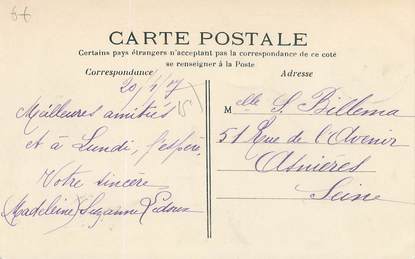 CARTE POSTALE
Certains pays étrangers n'acceptant pas la correspondance de ce coté
se renseigner à la Poste
Correspondance
Adresse
20/1/07
Meilleures amitiés
et à Lundi, j'espère.
Votre sincère
(Madeleine) Suzanne Ledoux
Melle S. Billema
51 Rue de l'Avenir
Asnières
Seine